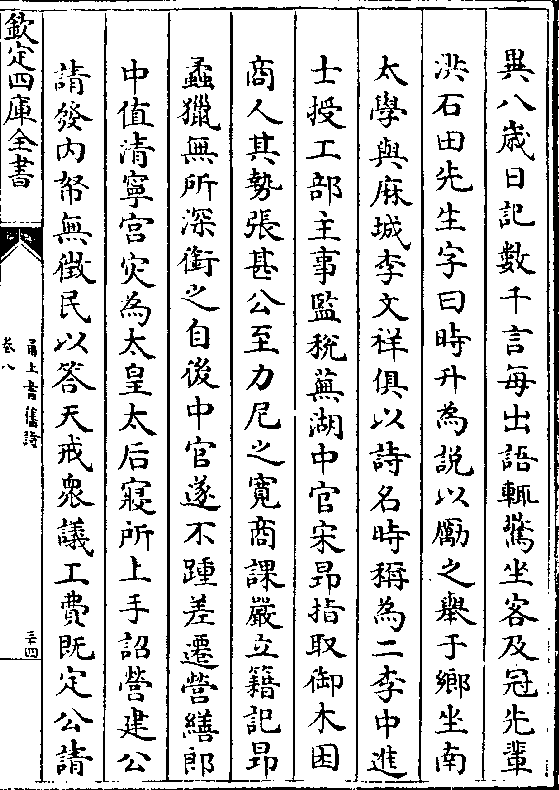 異八歳日記數千言每出語輒驚坐客及冠先輩
洪石田先生字曰時升為說以勵之舉于鄉坐南
太學與麻城李文祥俱以詩名時稱為二李中進
士授工部主事監稅蕪湖中官宋昂指取御木困
商人其勢張甚公至力尼之寬商課嚴立籍記昂
蟊獵無所深銜之自後中官遂不踵差遷營繕郎
中值清寧宮灾為太皇太后寢所上手詔營建公
請發内帑無徴民以答天戒衆議工費既定公請
欽定四庫全書
甬上耆舊詩
卷八
三十四